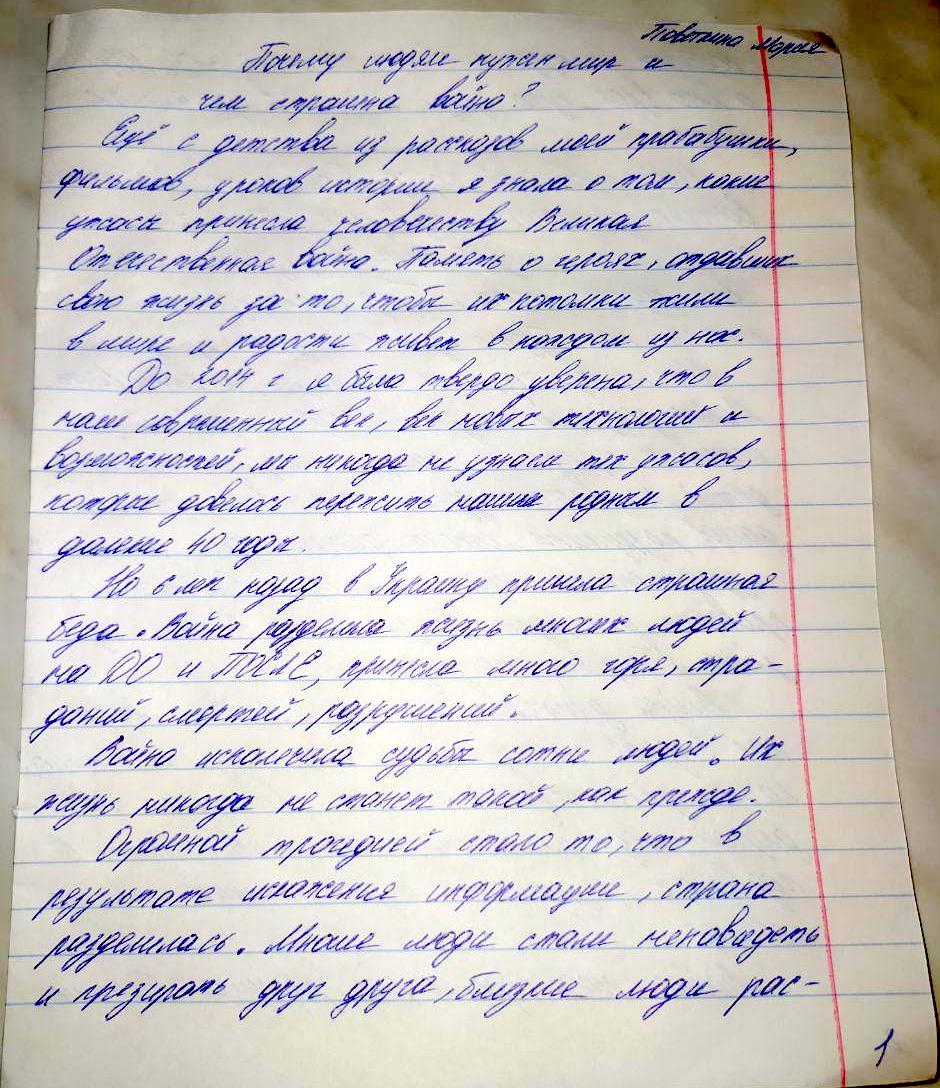 Повоткина Мария
Почему людям нужен мир и
чем страшна война?
Ещё с детства из рассказов моей прабабушки,
фильмов, уроков истории я знала о том, какие
ужасы принесла человечеству Великая
Отечественная война. Память о героях, отдавших
свою жизнь за то, чтобы их потомки жили
в мире и радости живет в каждом из нас.
До 2014 г я была твердо уверена, что в
наш современный век, век новых технологий и
возможностей, мы никогда не узнаем тех ужасов,
которые довелось пережить нашим родным в
далекие 40 годы.
Но 6 лет назад в Украину пришла страшная
беда. Война разделила жизнь многих людей
на ДО и ПОСЛЕ, принесла много горя, стра-
даний, смертей, разрушений.
Война искалечила судьбы сотни людей. Их
жизнь никогда не станет такой, как прежде.
Огромной трагедией стало то, что в
результате искажения информации, страна
разделилась. Многие люди стали ненавидеть
и презирать друг друга, близкие люди рас-
1